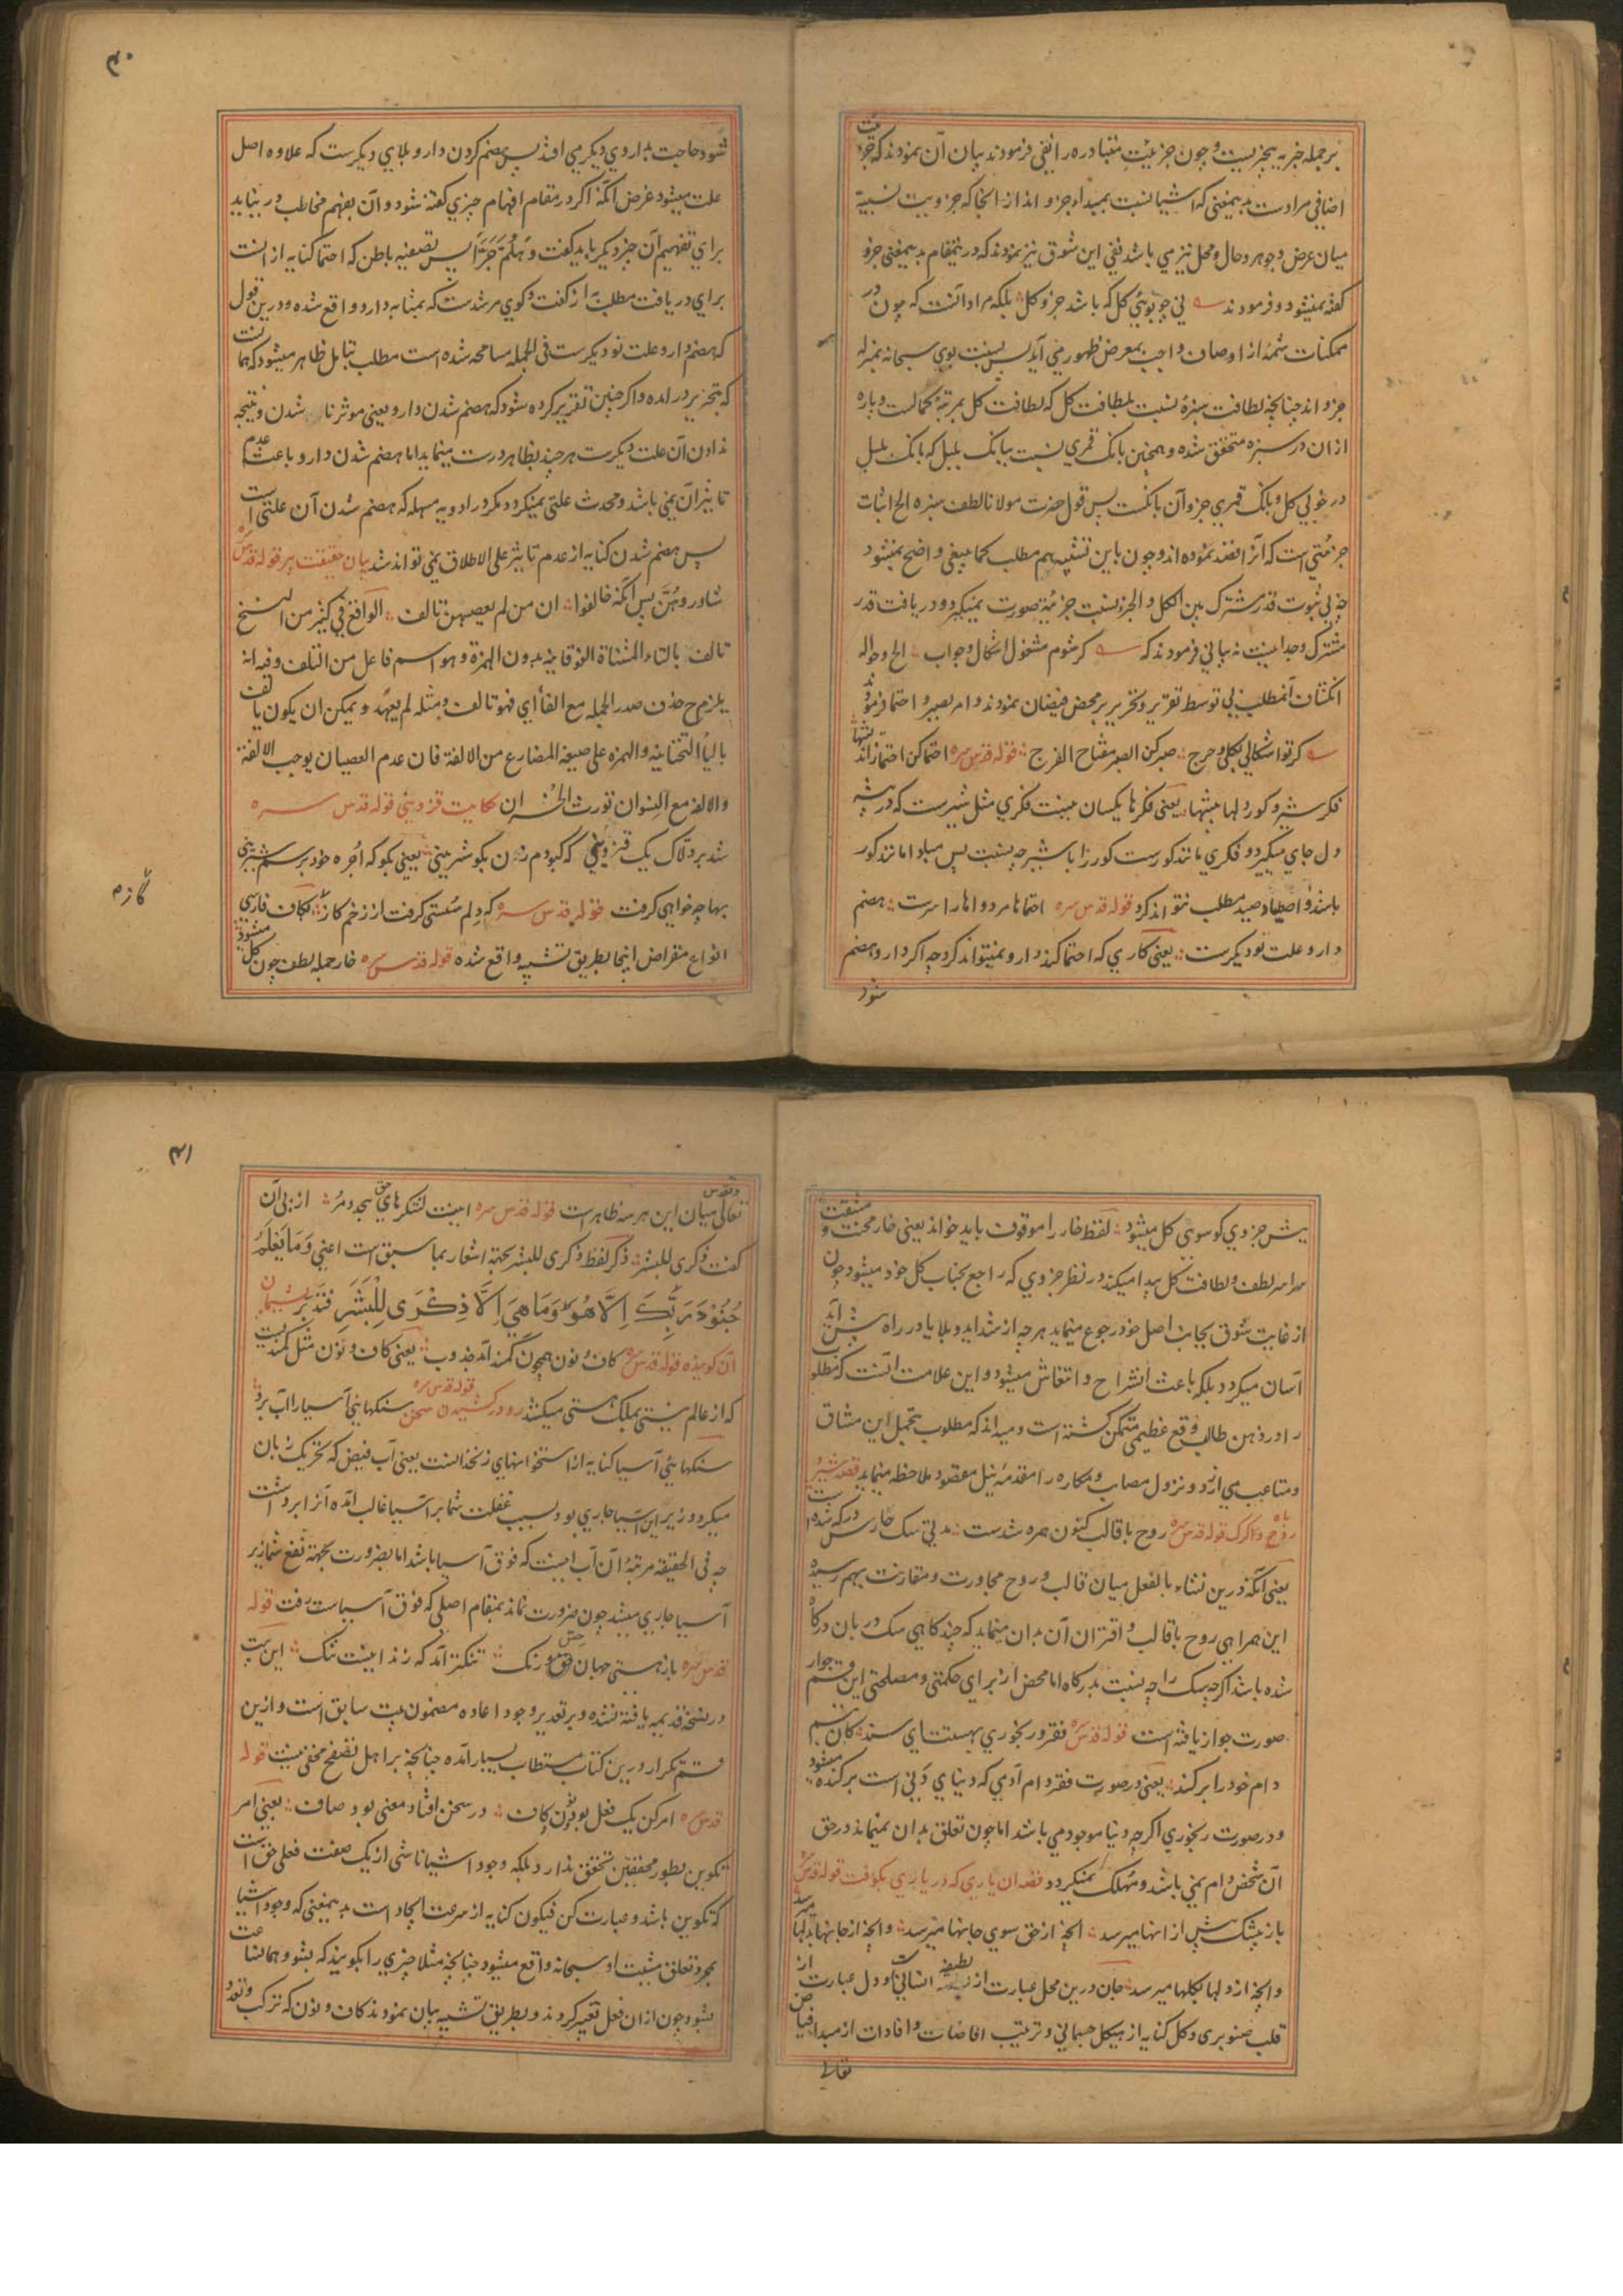 بر جمله خبریه بخبریست و چون جزئیت متبادره را نفی فرمودند بیان آن نمودند که جزئیت
اضافی مرادست بدیمعنی که اشیا نسبت بمبداء جزو اند از انجا که جزویت نسبیة
میان عرض و جوهر و حال و محل نیز می باشد نفی این شوق نیز نمودند که درینمقام بدیمعنی جزو
گفته نمیشود و فرمودند نی چو بوئی گل که باشد جزو گل بلکه مراد آنست که چون در
ممکنات شمهٔ از اوصاف واجب بمعرض ظهور می آید پس نسبت بوی سبحانه بمنزله
جزو اند چنانچه لطافت سبزهٔ نسبت بلطافت گل که لطافت گل بمرتبهٔ کمالست و پاره
ازان در سبزه متحقق شده و همچنین بانک قمری نسبت ببانک بلبل که بانک بلبل
در خوبی کل و بانک قمری جزو آن بانکست پس قول حضرت مولانا لطف سبزه الخ اثبات
جزئیتی است که آنرا قصد نموده اند و چون باین تشبیهم مطلب کما ینبغی واضح نمیشود
چه بی ثبوت قدر مشترک بین الکل و الجزء نسبت جزئیة صورت نمیگیرد و دریافت قدر
مشترک وجدانیست نه بیانی فرمودند که گر شوم مشغول اشکال و جواب الخ و حواله
انکشاف آنمطلب بی توسط تقریر و تحریر بر محض فیضان نمودند و امر بصبر و احتما فرمودند
گر تو اشکالی بکلی و حرج صبر کن الصبر مفتاح الفرج قوله قدس سره احتما کن احتما ز اندیشها
فکر شیر و گور دلها بیشها یعنی فکرها یکسان نیست فکری مثل شیرست که در بیشه
دل جای میگیرد و فکری مانند گورست گور را با شیر چه نسبت پس مبادا مانند گور
باشد و اصطیاد صید مطلب نتواند کرد قوله قدس سره احتماها مر دواها را سرست هضم
دارو علت نو دیگرست یعنی کاری که احتما کند دارو نمیتواند کرد چه اگر دارو هضم
شود
۴۰
شود حاجت بداروی دیگر می افتد پس هضم کردن دارو بلای دیگرست که علاوه اصل
علت میشود غرض آنکه اگر در مقام افهام چیزی گفته شود و آن بفهم مخاطب در نیاید
برای تفهیم آن چیز دیگر باید گفت و هلُمَّ جَرّاً پس تصفیه باطن که احتما کنایه از انست
برای دریافت مطلب به از گفت و گوی مرشدست که بمثابه دارو واقع شده و درین قول
که هضم دارو علت نو دیگرست فی الجمله مسامحه شده است مطلب بتامل ظاهر میشود که همانست
که بتحریر در آمده و اگر چنین تقریر کرده شود که هضم شدن دارو یعنی موثر نا شدن و نتیجه
ندادن آن علت دیگرست هر چند بظاهر درست مینماید اما هضم شدن دارو باعث عدم
تاثیر آن نمی باشد و محدث علتی نمیگردد مگر در ادویه مسهله که هضم شدن آن علتی است
پس هضم شدن کنایه از عدم تاثیر علی الاطلاق نمی تواند شد بیان حقیقت پیر قوله قدس سره
شاور و هُنَّ پس آنگه خالفوا ان من لم یعصهن تالف الواقع فی کثیر من النسخ
تالف بالتاء المثناة الفوقانیه بدون الهمزة و هو اسم فاعل من التلف و فیه انه
یلزم ح حذف صدر الجمله مع الفا أی فهو تالف و مثله لم یعهد و یمکن ان یکون یالف
بالیأ التحتانیه و الهمزه علی صیغه المضارع من الالفة فان عدم العصیان یوجب الالفة
والالفه مع النسوان تورث الخسران حکایت قزوینی قوله قدس سره
شد بر دلاک یک قزوینی که کبودم زن بکو شیرینی یعنی بکو که اُجره خود برسم شیرینی
بها چه خواهی گرفت قوله قدس سره که دلم سُستی گرفت از زخم گاز بکاف فارسی
انواع مقراض اینجا بطریق تشبیه واقع شده قوله قدس سره خار جمله لطف چون گل میشود
گازم
پیش جزوی کو سوئی کل میشود لفظ خار را موقوف باید خواند یعنی خار محنت و مشقت
سراسر لطف و لطافت گل پیدا میکند در نظر جزوی که راجع بجناب کل خود میشود چون
از غایت شوق بجانب اصل خود رجوع مینماید هر چه از شداید و بلایا در راه پیش آید
آسان میگردد بلکه باعث انشراح و انتعاش میشود و این علامت آنست که مطلوب
را در ذهن طالب وقع عظیمی متمکن گشته است و میداند که مطلوب بتحمل این مشاق
و متاعب می ارزد و نزول مصایب و مکاره را مقدمه نیل مقصود ملاحظه مینماید قصه شیر و
روباه و گرگ قوله قدس سره روح با قالب کنون همره شدست مدتی سک حارس درگه شدست
یعنی آنکه درین نشاء بالفعل میان قالب و روح مجاورت و مقارنت بهم رسیده
این همراهی روح با قالب و اقتران آن بدان مینماید که چند کاهی سک دربان درگاه
شده باشد اگرچه سک را چه نسبت بدرگاه اما محض از برای حکمتی و مصلحتی این قسم جوار
صورت جواز یافته است قوله قدس سره فقر و رنجوری بهستت ای سند کان
دام خود را برکند یعنی در صورت فقر دام آدمی که دنیای دَنی است برکنده میشود
و در صورت رنجوری اگرچه دنیا موجود می باشد اما چون تعلق بدان نمیماند در حق
آن شخص دام نمی باشد و مُهلک نمیگردد قصه آن یاری که در یاری بکوفت قوله قدس سره
باز بیشک پیش از اینها میرسد آنچه از حق سوی جانها میرسد و آنچه از جانها بدلها میرسد
و آنچه از دلها بکلها میرسد جان درین محل عبارت از لطیفه انسانی است و دل عبارت از
قلب صنوبری و گل کنایه از هیکل جسمانی و ترتیب افاضات و افادات از مبدا فیاض
تعالی
۴۱
تعالی و تقدس میان این هر سه ظاهر است قوله قدس سره اینست لشکرهای حق بیحد و مُر از پی آن
گفت ذکری للبشر ذکر لفظ ذکری للبشر بجهة اشعار بما سبق است اعنی وَمَا یَعْلَمُ
جُنُوْدَ رَبِّكَ اِلَّا هُوَ وَمَا هِيَ اِلَّا ذِكْرَى لِلْبَشَرِ فتدبر پشیمان
آن گوینده قوله قدس سره کاف و نون همچون کمند آمد جذوب یعنی کاف و نون مثل کمندیست
که از عالم نیستی بملک هستی میکشد رو در کشیدن سخن قوله قدس سره سنکهای آسیا را آب برد
سنکهای آسیا کنایه از استخوانهای زنخدانست یعنی آب فیض که تحریک زبان
میکرد و زیر این آسیا جاری بود بسبب غفلت شما بر آسیا غالب آمده آنرا برداشت
چه فی الحقیقه مرتبهٔ آن آب اینست که فوق آسیا باشد اما بضرورت بجهة نفع شما زیر
آسیا جاری میشد چون ضرورت نماند بمقام اصلی که فوق آسیاست رفت قوله
قدس سره باز هستی جهان حس و رنک تنکتر آمد که زندانیست تنک این بیت
در نسخه قدیمه یافته نشده و بر تقدیر وجود اعاده مضمون بیت سابق است و ازین
قسم تکرار درین کتاب مستطاب بسیار آمده چنانچه بر اهل تصفح مخفی نیست قوله
قدس سره امر کن یک فعل بود و نون و کاف در سخن افتاد و معنی بود صاف یعنی امر
تکوین بطور محققین تحقق ندارد بلکه وجود اشیا ناشی از یک صفت فعلی حق است
که تکوین باشد و عبارت کن فیکون کنایه از سرعت ایجاد است بدیمعنی که وجود اشیا
بمجرد تعلق مشیت او سبحانه واقع میشود چنانچه مثلا چیزی را بکویند که بشو و همانساعت
بشود چون ازان فعل تعبیر کردند و بطریق تشبیه بیان نمودند کاف و نون که ترکب و تعدد